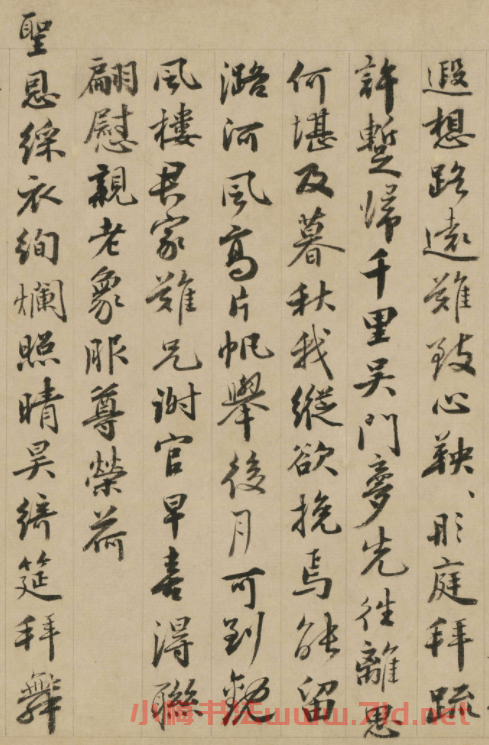 遐想路遠難致心鞅鞅彤庭拜疏
許蹔歸千里吳門夢先往離思
何堪及暮秋我縱欲挽焉能留
潞河風高片帆舉後月可到甑
風樓君家難兄謝官早喜得聯
翩慰親老象服尊榮荷
聖恩綵衣絢爛照晴昊綺筵拜舞
小楷书法www.71d.net